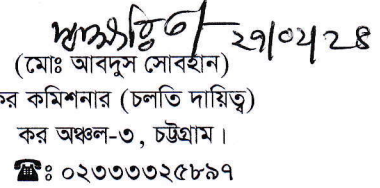 স্বাক্ষরিত ২৭/০২/২৪
(মোঃ আবদুস সোবহান)
কর কমিশনার (চলতি দায়িত্ব)
কর অঞ্চল-৩, চট্টগ্রাম।
☎: ০২৩৩৩৩২৫৮৯৭